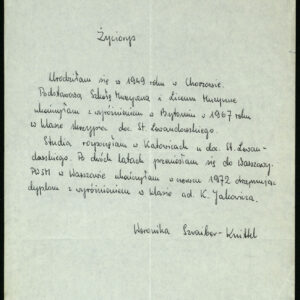 Życiorys
Urodziłam się w 1949 roku w Chorzowie.
Podstawową Szkołę Muzyczną i Liceum Muzyczne
ukończyłam z wyróżnieniem w Bytomiu w 1967 roku
w klasie skrzypiec doc. St. Lewandowskiego.
Studia rozpoczęłam w Katowicach u doc. St. Lewan-
dowskiego. Po dwóch latach przeniosłam się do Warszawy.
PWSM w Warszawie ukończyłam w 1972 otrzymując
dyplom z wyróżnieniem w klasie ad. K. Jakowicza.
Weronika Szraiber-Knittel